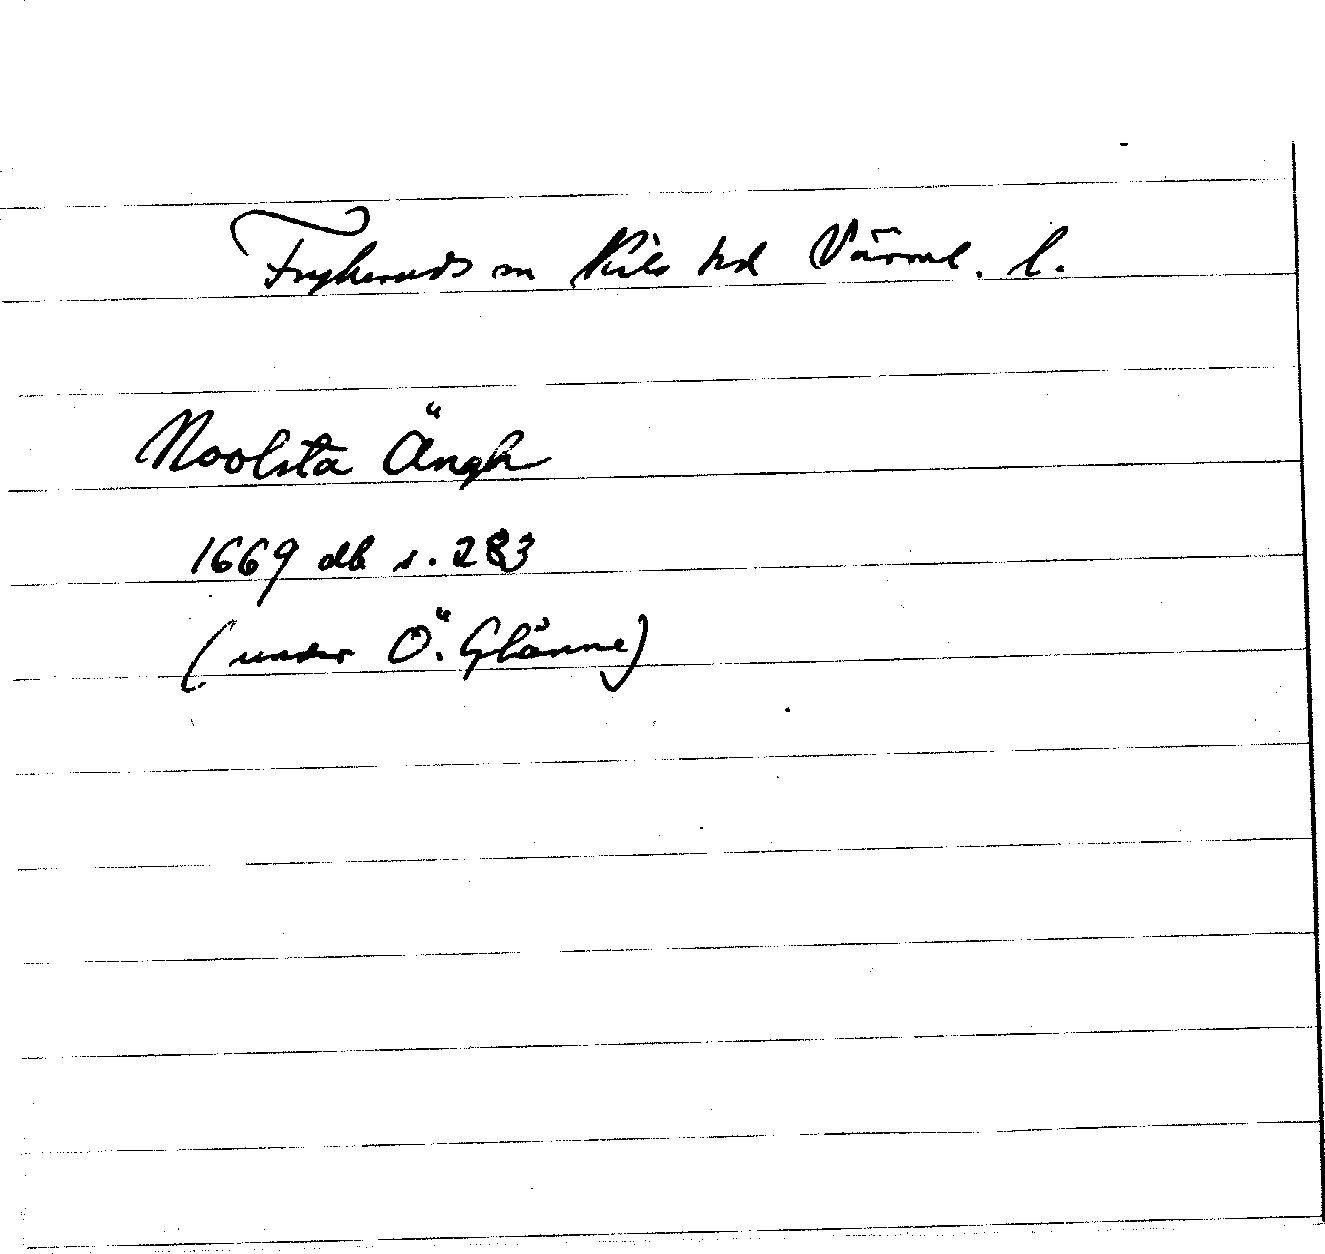 Frykeruds sn Kils hd Värml. l.
Noolsta Ängh
1669 db s. 283
(under Ö. Glänne)